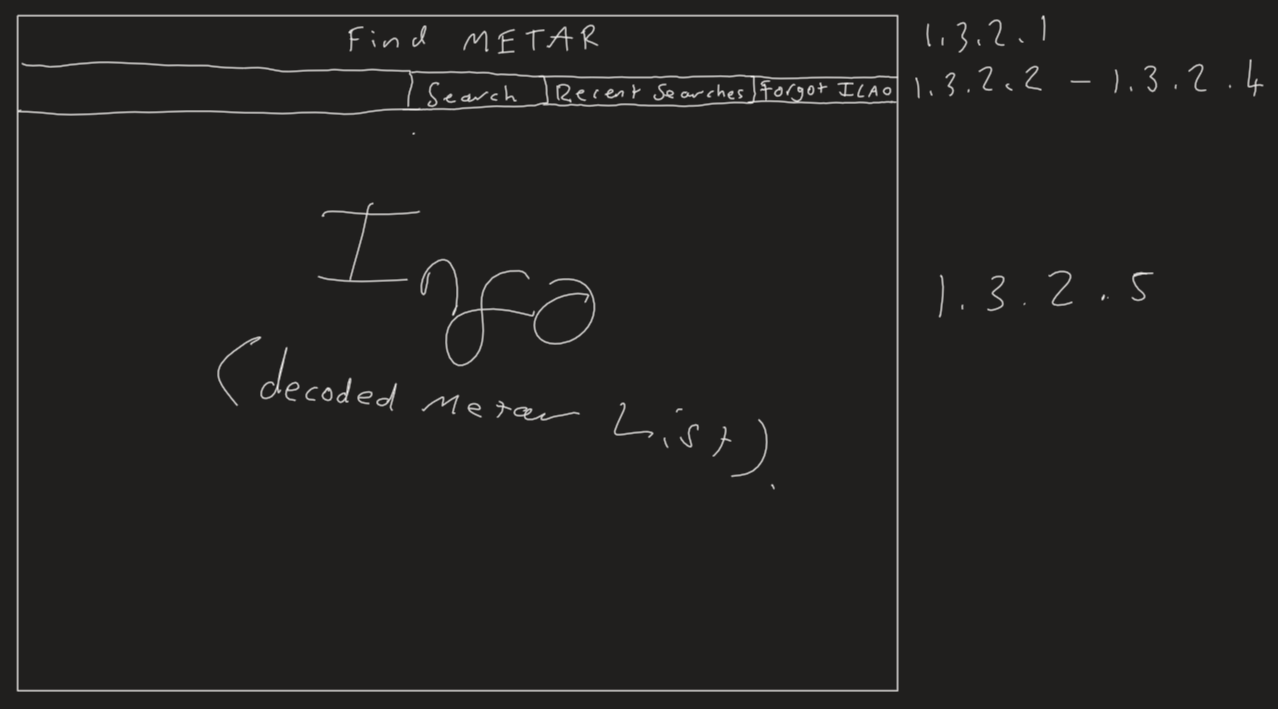 Find METAR 1.3.2.1
Search Recent Searches Forgot ICAO 1.3.2.2 - 1.3.2.4
Info 1.3.2.5
(decoded Metar List).